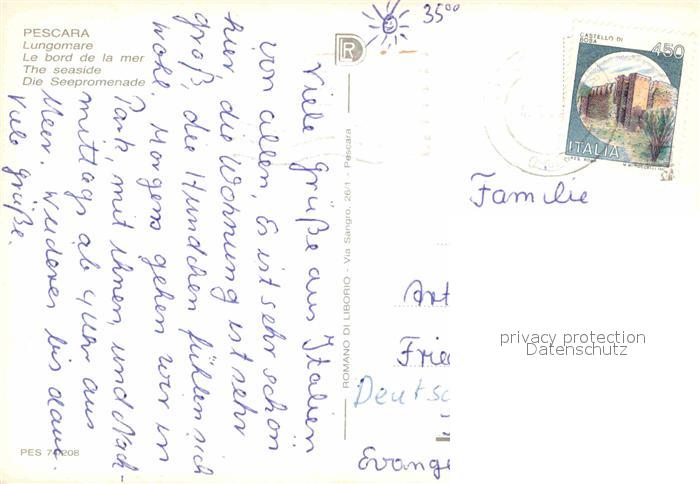 PESCARA
Lungomare
Le bord de la mer
The seaside
Die Seepromenade
35⁰⁰
Viele grüße aus Italien
von allen, Es ist sehr schön
hier, die Wohnung ist sehr
groß, die Hundchen fühlen sich
wohl. Morgens gehen wir in
Park, mit ihnen, und Nach-
mittags ab 4 Uhr aus
Meer. wiederes bis dann.
Viele grüße.
PES 74/208
R
ROMANO DI LIBORIO - Via Sangro, 26/1 - Pescara
CASTELLO DI
ROSA
450
ITALIA
Familie
Art
Frie
Deutsc
Evange
privacy protection
Datenschutz